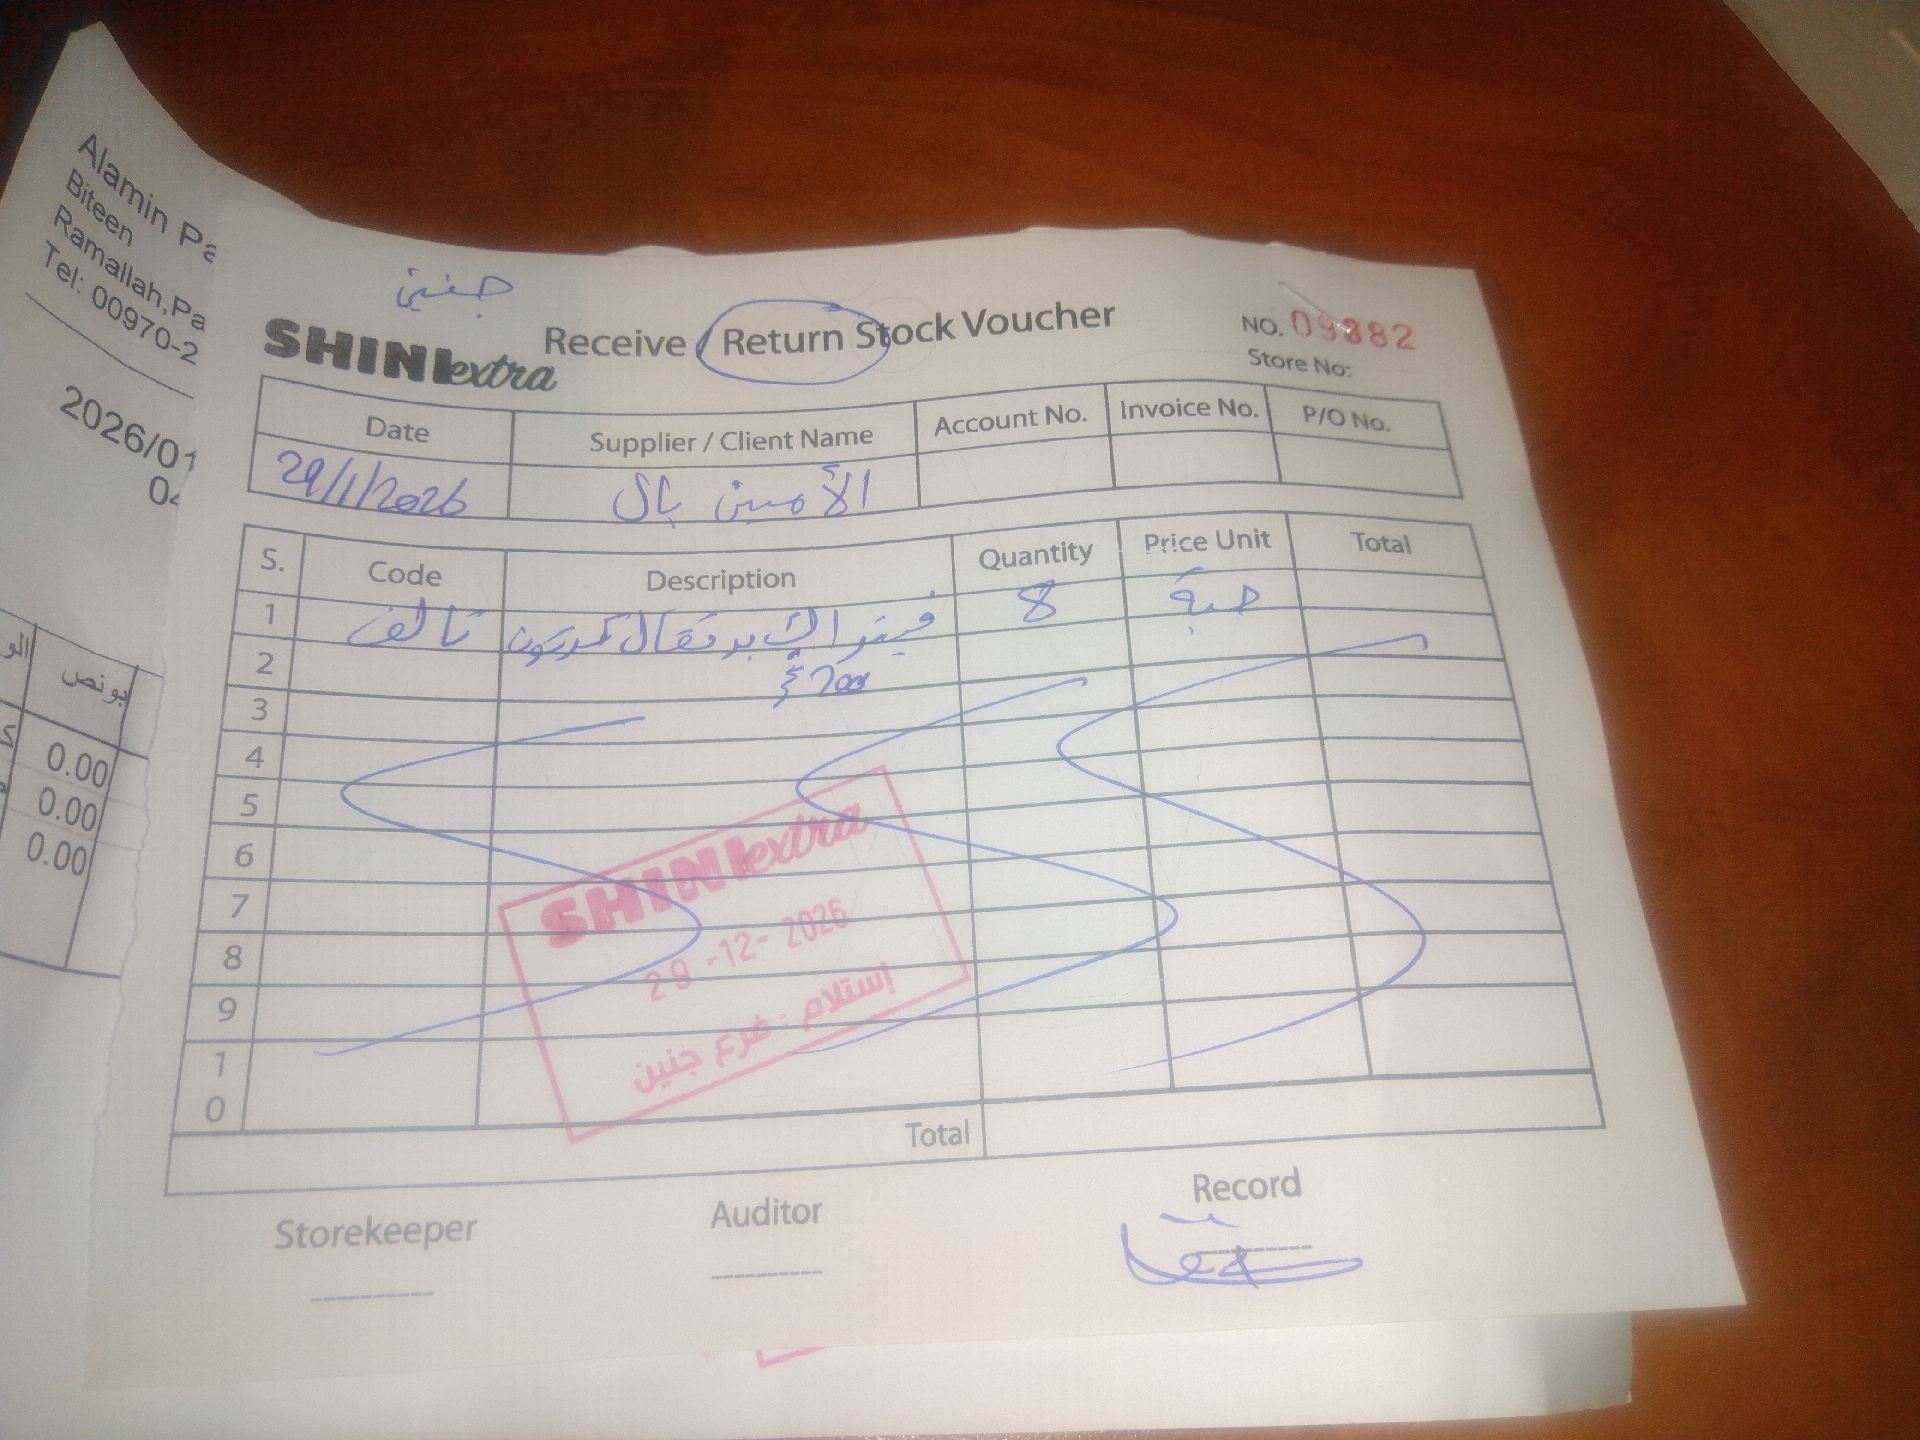 Alamin Pa
Biteen
Ramallah,Pa
Tel: 00970-2
2026/01
04
الو
بونص
0.00
0.00
0.00
جنين
SHINI extra
Receive / Return Stock Voucher
NO. 09382
Store No:
Date Supplier / Client Name Account No. Invoice No. P/O No.
29/1/2026 الأمين بال
S. Code Description Quantity Price Unit Total
1 تالف برتقال كرتون 8 حبة
2
3
4
5
6
7
8
9
10
SHINI extra
29-12-2026
إستلام : فرع جنين
Total
Storekeeper Auditor Record